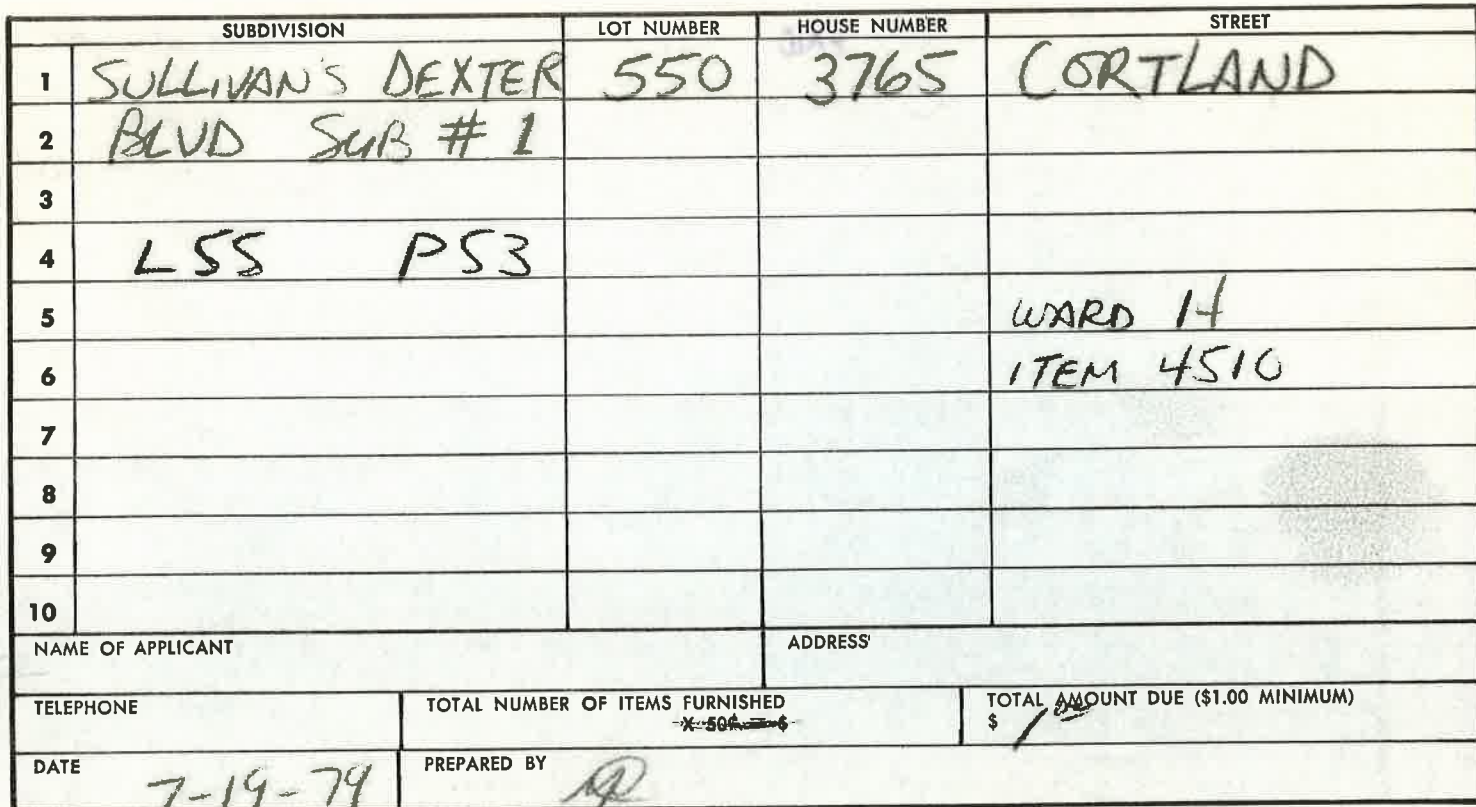 SUBDIVISION LOT NUMBER HOUSE NUMBER STREET
1 SULLIVAN'S DEXTER 550 3765 CORTLAND
2 BLVD SUB # 1
3
4 L55 P53
5 WARD 14
6 ITEM 4510
7
8
9
10
NAME OF APPLICANT ADDRESS
TELEPHONE TOTAL NUMBER OF ITEMS FURNISHED TOTAL AMOUNT DUE ($1.00 MINIMUM)
X 50¢ = $ $ 1 00
DATE 7-19-79 PREPARED BY